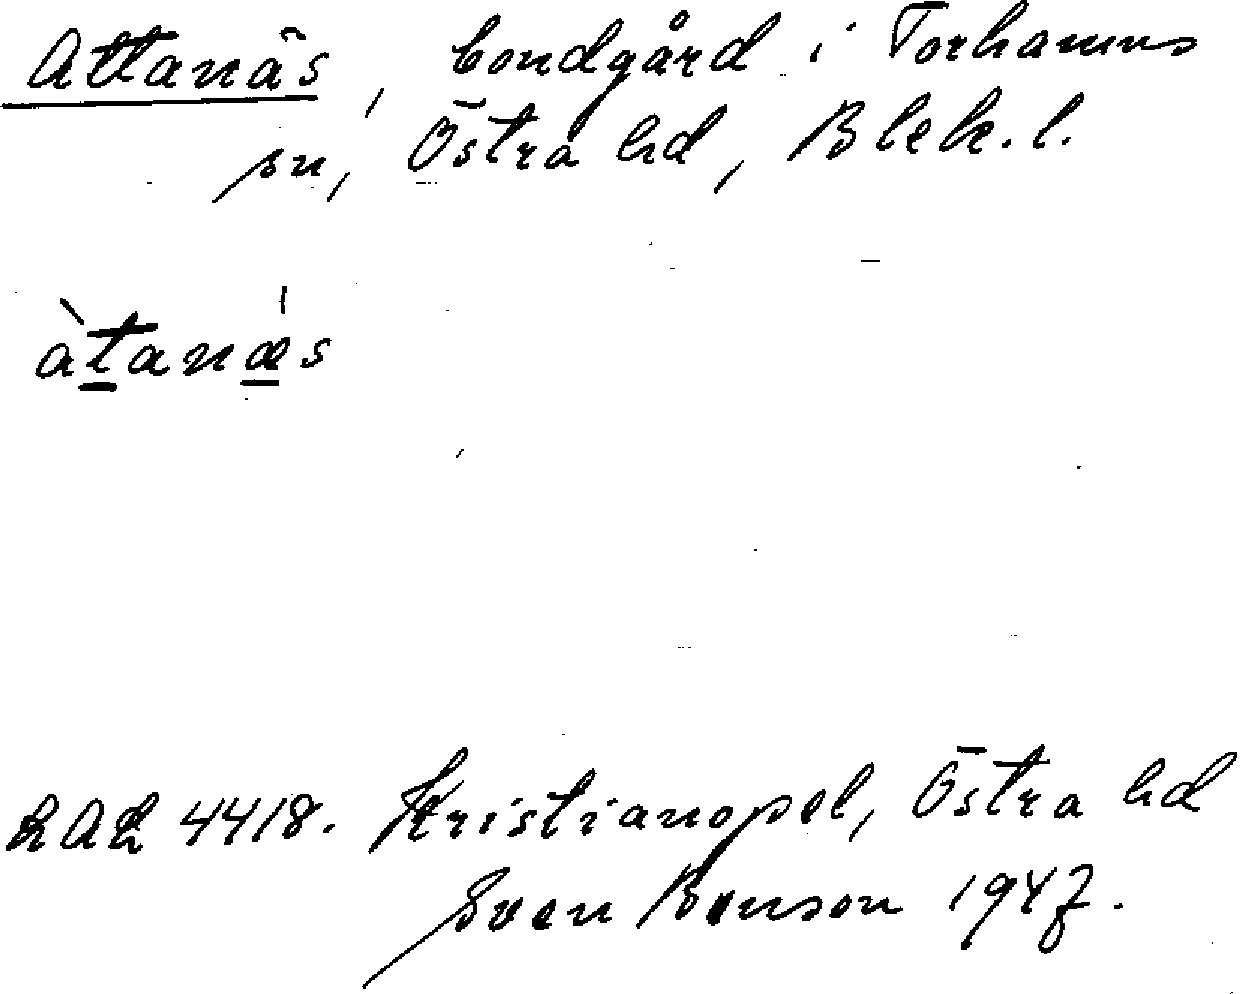 Attanäs, bondgård i Torhamns
sn, Östra hd, Blek. l.
àtanǽs
LAL 4418. Kristianopel, Östra hd
Sven Benson 1947.